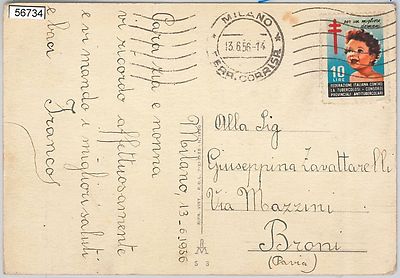 56734
MILANO
13.6.56-14
FERR. CORRISP.
per un migliore
domani
10
LIRE
FEDERAZIONE ITALIANA CONTRO
LA TUBERCOLOSI - CONSORZI
PROVINCIALI ANTITUBERCOLARI
Milano, 13-6-1956
Cara zia e nonna
vi ricordo affettuosamente
e vi mando i migliori saluti
e baci Franco
Alla Sig
Giuseppina Zavattarelli
Via Mazzini
Broni
(Pavia)